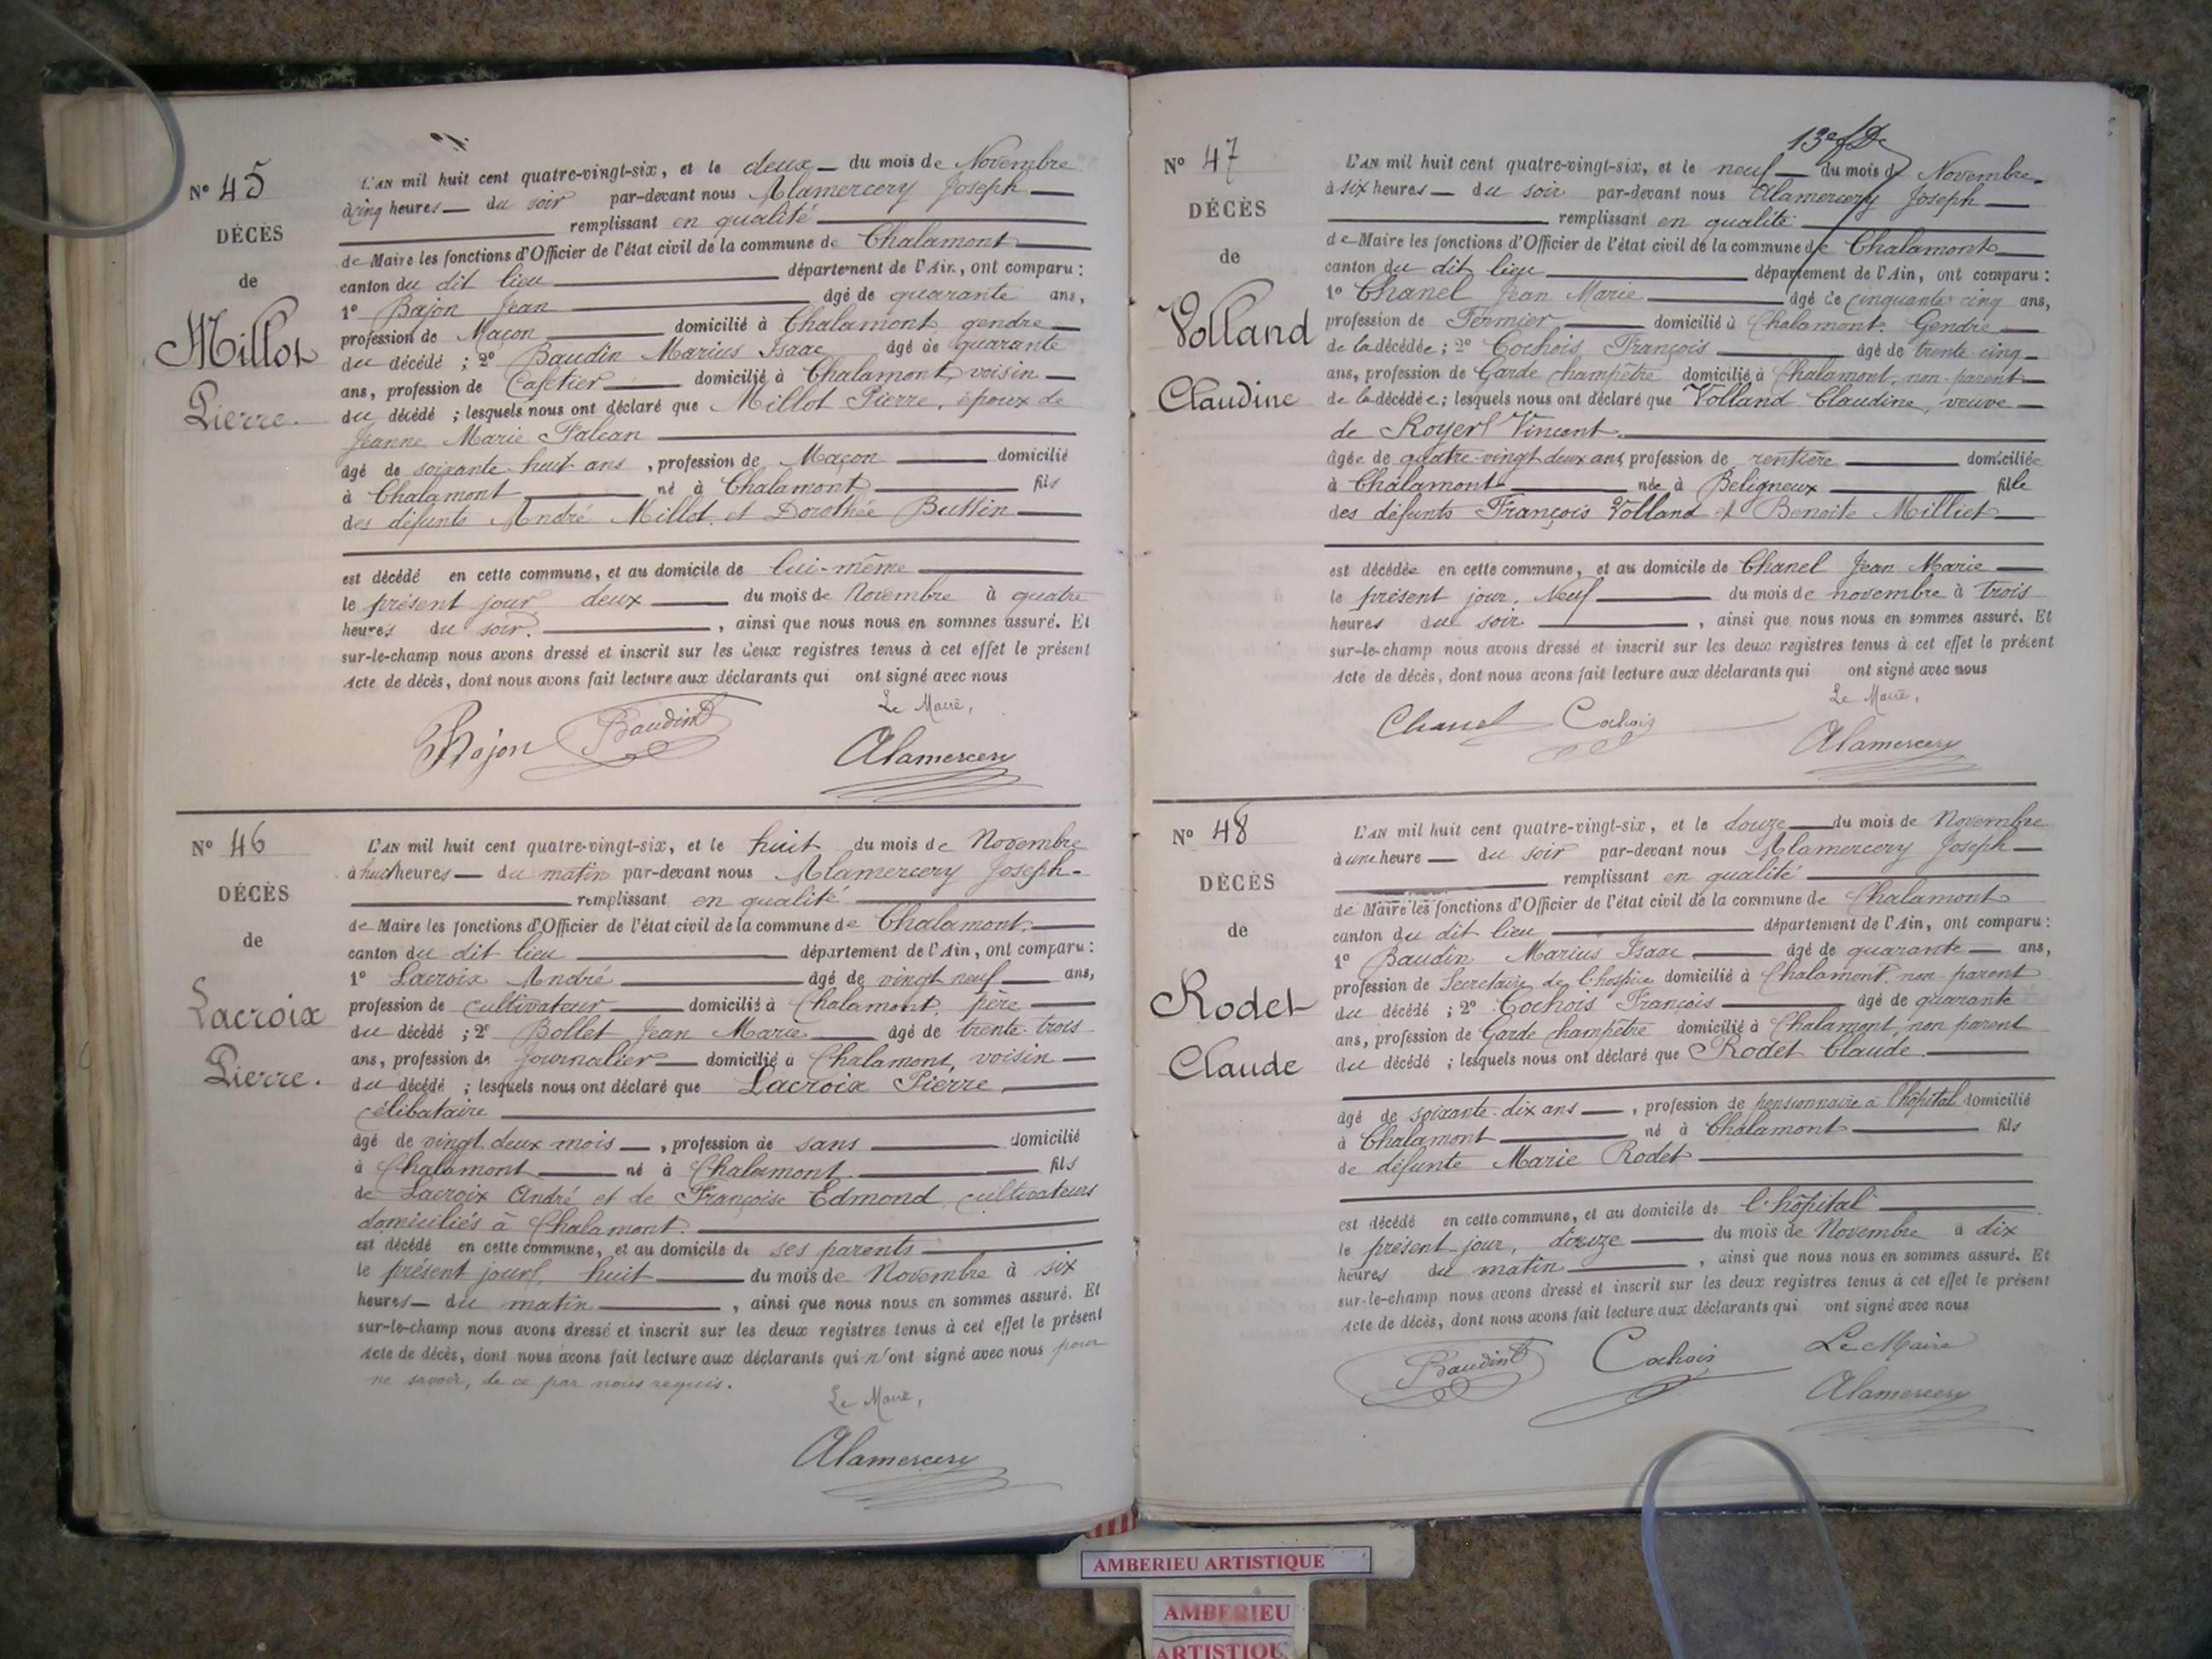 N° 45
DÉCÈS
de
Millot
Pierre.
L'AN mil huit cent quatre-vingt-six, et le deux du mois de Novembre
à cinq heures du soir par-devant nous Alamercery Joseph
remplissant en qualité
de Maire les fonctions d'Officier de l'état civil de la commune de Chalamont
canton du dit lieu département de l'Ain, ont comparu :
1° Bajon Jean âgé de quarante ans,
profession de Maçon domicilié à Chalamont, gendre
du décédé ; 2° Baudin Marius Isaac âgé de quarante
ans, profession de Cafetier domicilié à Chalamont, voisin
du décédé ; lesquels nous ont déclaré que Millot Pierre, époux de
Jeanne Marie Falcan
âgé de soixante-huit ans, profession de Maçon domicilié
à Chalamont né à Chalamont fils
des défunts André Millot et Dorothée Buttin
est décédé en cette commune, et au domicile de lui-même
le présent jour deux du mois de Novembre à quatre
heures du soir. , ainsi que nous nous en sommes assuré. Et
sur-le-champ nous avons dressé et inscrit sur les deux registres tenus à cet effet le présent
Acte de décès, dont nous avons fait lecture aux déclarants qui ont signé avec nous
Le Maire,
Bajon Baudin Alamercery
N° 46
DÉCÈS
de
Lacroix
Pierre.
L'AN mil huit cent quatre-vingt-six, et le huit du mois de Novembre
à huit heures du matin par-devant nous Alamercery Joseph
remplissant en qualité
de Maire les fonctions d'Officier de l'état civil de la commune de Chalamont.
canton du dit lieu département de l'Ain, ont comparu :
1° Lacroix André âgé de vingt neuf ans,
profession de cultivateur domicilié à Chalamont, père
du décédé ; 2° Bollet Jean Marie âgé de trente-trois
ans, profession de Journalier domicilié à Chalamont, voisin
du décédé ; lesquels nous ont déclaré que Lacroix Pierre,
célibataire
âgé de vingt deux mois , profession de sans domicilié
à Chalamont né à Chalamont. fils
de Lacroix André et de Françoise Edmond, cultivateurs
domiciliés à Chalamont.
est décédé en cette commune, et au domicile de ses parents
le présent jour, huit du mois de Novembre à six
heures du matin , ainsi que nous nous en sommes assuré. Et
sur-le-champ nous avons dressé et inscrit sur les deux registres tenus à cet effet le présent
Acte de décès, dont nous avons fait lecture aux déclarants qui n'ont signé avec nous pour
ne savoir, de ce par nous requis.
Le Maire,
Alamercery
N° 47
DÉCÈS
de
Volland
Claudine
13e
L'AN mil huit cent quatre-vingt-six, et le neuf du mois de Novembre
à six heures du soir par-devant nous Alamercery Joseph
remplissant en qualité
de Maire les fonctions d'Officier de l'état civil de la commune de Chalamont
canton du dit lieu département de l'Ain, ont comparu :
1° Chanel Jean Marie âgé de cinquante cinq ans,
profession de Fermier domicilié à Chalamont. Gendre
de la décédée ; 2° Cochois François âgé de trente-cinq
ans, profession de Garde champêtre domicilié à Chalamont, non-parent
de la décédée ; lesquels nous ont déclaré que Volland Claudine, veuve
de Royer Vincent.
âgée de quatre-vingt deux ans, profession de rentière domiciliée
à Chalamont née à Beligneux fille
des défunts François Volland et Benoite Milliet
est décédée en cette commune, et au domicile de Chanel Jean Marie
le présent jour, Neuf du mois de novembre à trois
heures du soir , ainsi que nous nous en sommes assuré. Et
sur-le-champ nous avons dressé et inscrit sur les deux registres tenus à cet effet le présent
Acte de décès, dont nous avons fait lecture aux déclarants qui ont signé avec nous
Le Maire,
Chanel Cochois Alamercery
N° 48
DÉCÈS
de
Rodet
Claude
L'AN mil huit cent quatre-vingt-six, et le douze du mois de Novembre
à une heure du soir par-devant nous Alamercery Joseph
remplissant en qualité
de Maire les fonctions d'Officier de l'état civil de la commune de Chalamont
canton du dit lieu département de l'Ain, ont comparu :
1° Baudin Marius Isaac âgé de quarante ans,
profession de Secrétaire de l'hospice domicilié à Chalamont. non parent
du décédé ; 2° Cochois François âgé de quarante
ans, profession de Garde champêtre domicilié à Chalamont, non parent
du décédé ; lesquels nous ont déclaré que Rodet Claude.
âgé de soixante-dix ans , profession de pensionnaire à l'hôpital domicilié
à Chalamont né à Chalamont fils
de défunte Marie Rodet
est décédé en cette commune, et au domicile de l'hôpital
le présent jour, douze du mois de Novembre à dix
heures du matin , ainsi que nous nous en sommes assuré. Et
sur-le-champ nous avons dressé et inscrit sur les deux registres tenus à cet effet le présent
Acte de décès, dont nous avons fait lecture aux déclarants qui ont signé avec nous
Le Maire
Baudin Cochois Alamercery
AMBERIEU ARTISTIQUE
AMBERIEU
ARTISTIQU